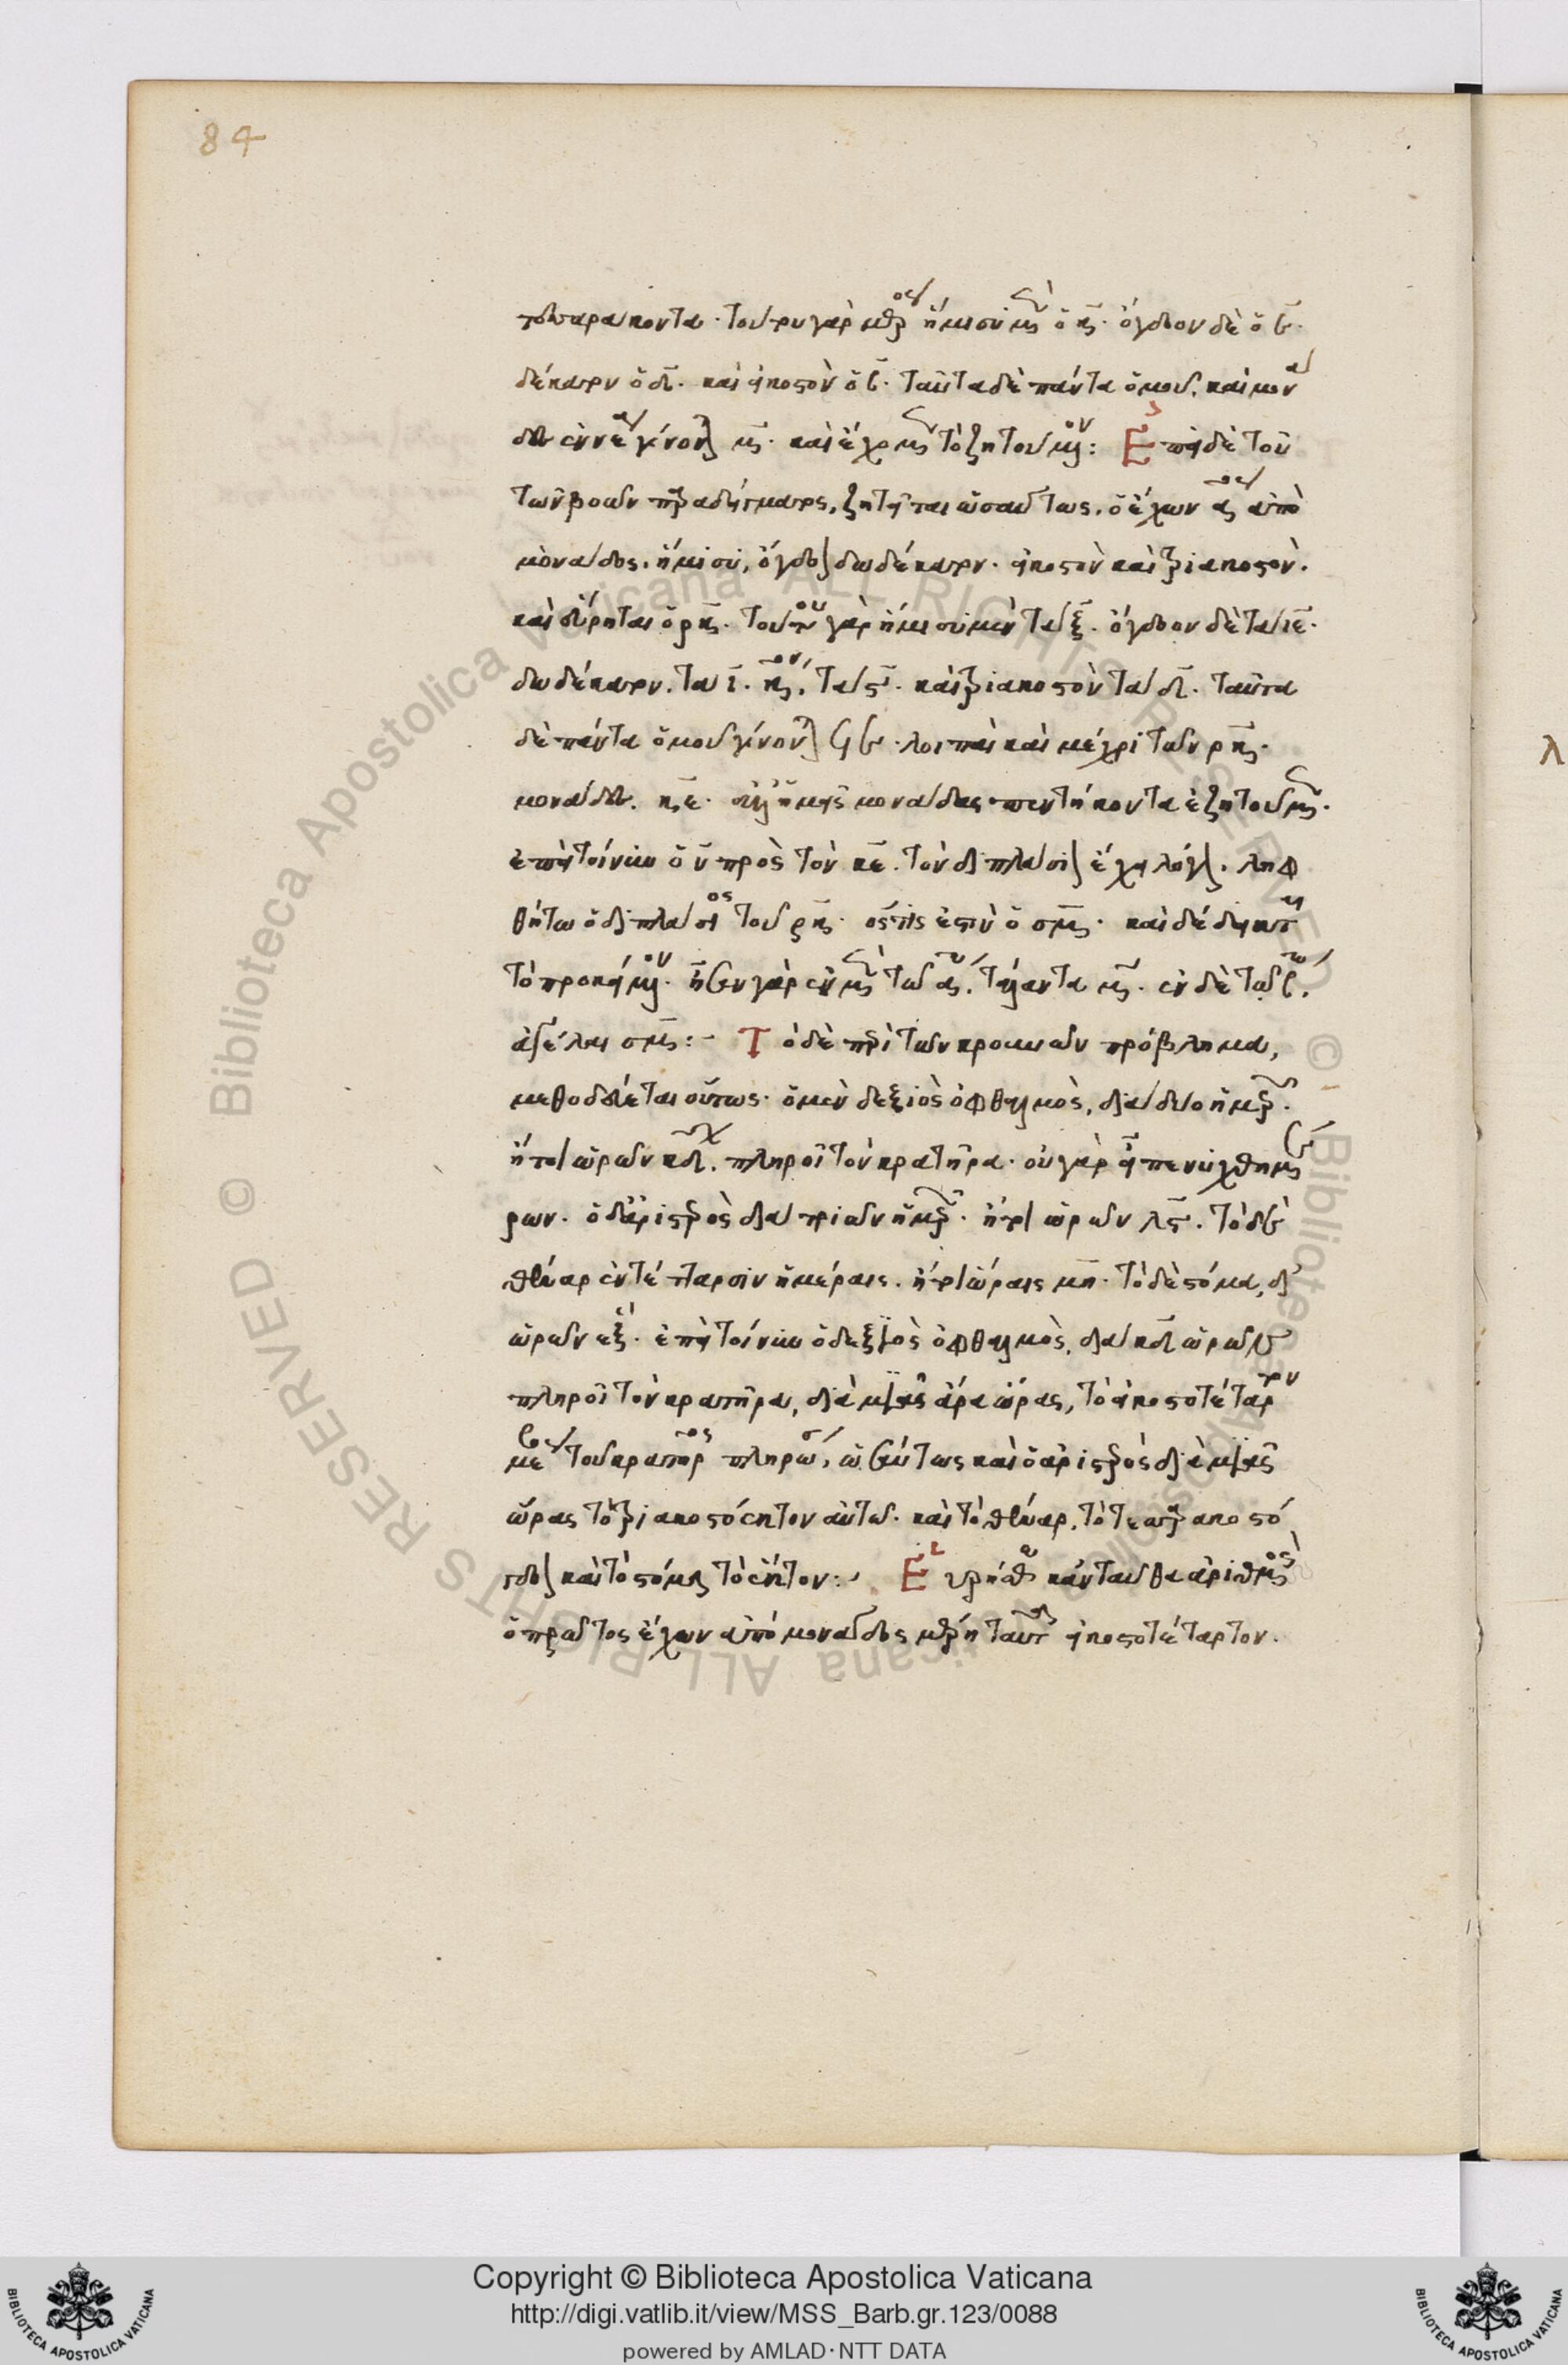 84
τεσσαράκοντα· τούτου γὰρ μέρ ἥμισυ μὲν ὁ κ· ὄγδοον δὲ ὁ ε·
δέκατον ὁ δ· καὶ εἰκοστὸν ὁ β· ταῦτα δὲ πάντα ὁμοῦ, καὶ μονὰ
δες ἐννέα γίνονται μ· καὶ ἔχομεν τὸ ζητούμενον: Ἐπεὶ δὲ τοῦ
τῶν βοῶν παραδείγματος, ζητεῖται ὡσαύτως, ὁ ἔχων ἀπὸ
μονάδος, ἥμισυ, ὄγδοον δωδέκατον· εἰκοστὸν καὶ τριακοστόν·
καὶ εὕρηται ὁ ρκ· τούτου γὰρ ἥμισυ μὲν τὰ ξ· ὄγδοον δὲ τὰ ιε·
δωδέκατον, τὰ ι· κον, τὰ ς· καὶ τριακοστὸν τὰ δ· ταῦτα
δὲ πάντα ὁμοῦ γίνονται ϟε· λοιπαὶ καὶ μέχρι τῶν ρκ·
μονάδες κε· ἀλλ' ἡμεῖς μονάδας πεντήκοντα ἐζητοῦμεν·
ἐπεὶ τοίνυν ὁ ν πρὸς τὸν κε τὸν διπλάσιον ἔχει λόγον, ληφ
θήτω ὁ διπλάσιος τοῦ ρκ· ὅστις ἐστὶν ὁ σμ· καὶ δέδεικται
τὸ προκείμενον· ἦσαν γὰρ ἐν μὲν τῶ αω, τάλαντα μ· ἐν δὲ τῶ βω,
ἀγέλαι σμ:- Τὸ δὲ περὶ τῶν κρουνῶν πρόβλημα,
μεθοδεύεται οὕτως· ὁ μὲν δεξιὸς ὀφθαλμὸς, διὰ δύο ἡμερῶν·
ἤτοι ὡρῶν κδ, πληροῖ τὸν κρατῆρα· οὐ γὰρ
ρων· ὁ δ' ἀριστερὸς διὰ τριῶν ἡμερῶν· ἤτοι ὡρῶν λς· τὸ δὲ
θέναρ ἐν τέτταρσιν ἡμέραις· ἤτοι ὥραις μη· τὸ δὲ στόμα, δι'
ὡρῶν ἕξ· ἐπεὶ τοίνυν ὁ δεξιὸς ὀφθαλμὸς, διὰ κδ ὡρῶν
πληροῖ τὸν κρατῆρα, διὰ μιᾶς ἄρα ὥρας, τὸ εἰκοστοτέταρτον
μέρος τοῦ κρατῆρος πληρώσει, ὡσαύτως καὶ ὁ ἀριστερὸς διὰ μιᾶς
ὥρας τὸ τριακοστόεκτον αὐτοῦ· καὶ τὸ θέναρ, τὸ τεσσαρακοστό
γδοον καὶ τὸ στόμα τὸ ἕκτον:· Εὑρήσθω κἀνταῦθα ἀριθμὸς
ὁ πρῶτος ἔχων ἀπὸ μονάδος μέρη ταῦτα εἰκοστοτέταρτον.
λ
Copyright © Biblioteca Apostolica Vaticana
http://digi.vatlib.it/view/MSS_Barb.gr.123/0088
powered by AMLAD·NTT DATA